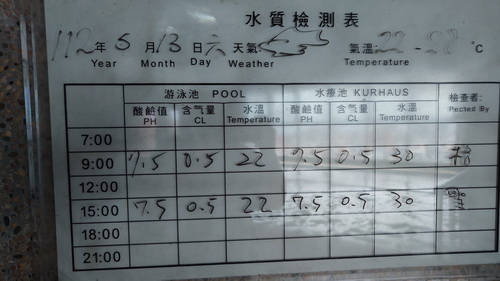 水質檢測表
112年 5月 13日 六 天氣 氣溫: 22-28 °C
Year Month Day Weather Temperature
游泳池 POOL 水療池 KURHAUS 檢查者:
酸鹼值 含气量 水溫 酸鹼值 含气量 水溫 Pected By
PH CL Temperature PH CL Temperature
7:00
9:00 7.5 0.5 22 7.5 0.5 30
12:00
15:00 7.5 0.5 22 7.5 0.5 30
18:00
21:00